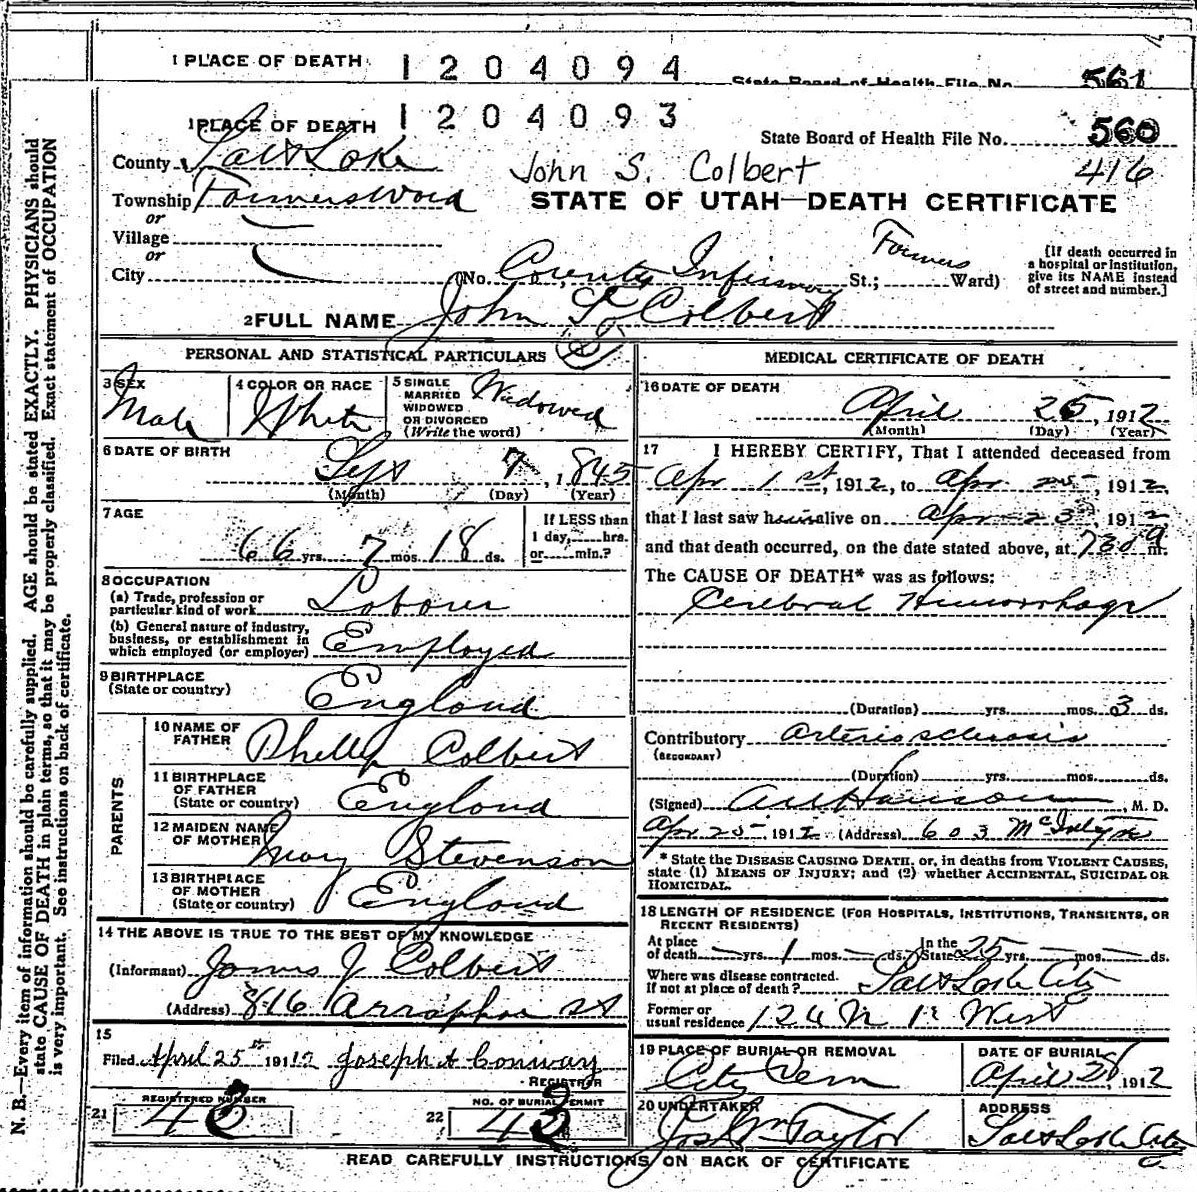 1 PLACE OF DEATH 1204094 State Board of Health File No. 561
1 PLACE OF DEATH 1204093 State Board of Health File No. 560
County Salt Lake John S. Colbert 416
Township Farmersward STATE OF UTAH—DEATH CERTIFICATE
or
Village
or
City (No. County Infirmary St.; Farmers Ward) [If death occurred in a hospital or institution, give its NAME instead of street and number.]
2 FULL NAME John S Colbert
(S)
PERSONAL AND STATISTICAL PARTICULARS
3 SEX Male
4 COLOR OR RACE White
5 SINGLE MARRIED WIDOWED OR DIVORCED (Write the word) Widowed
6 DATE OF BIRTH Sept 7, 1845
(Month) (Day) (Year)
7 AGE 66 yrs. 7 mos. 18 ds. If LESS than 1 day, hrs. or min.?
8 OCCUPATION
(a) Trade, profession or particular kind of work Laborer
(b) General nature of industry, business, or establishment in which employed (or employer) Employed
9 BIRTHPLACE (State or country) England
PARENTS
10 NAME OF FATHER Phillip Colbert
11 BIRTHPLACE OF FATHER (State or country) England
12 MAIDEN NAME OF MOTHER Mary Stevenson
13 BIRTHPLACE OF MOTHER (State or country) England
14 THE ABOVE IS TRUE TO THE BEST OF MY KNOWLEDGE
(Informant) James J Colbert
(Address) 816 Arraphoe st
15
Filed April 25th 1912 Joseph A Conway
REGISTRAR
21 REGISTERED NUMBER 43
22 NO. OF BURIAL PERMIT 43
MEDICAL CERTIFICATE OF DEATH
16 DATE OF DEATH
April 25, 1912
(Month) (Day) (Year)
17 I HEREBY CERTIFY, That I attended deceased from
Apr 1st, 1912, to Apr 25, 1912,
that I last saw him alive on Apr 23, 1912
and that death occurred, on the date stated above, at 730 a m.
The CAUSE OF DEATH* was as follows:
Cerebral Hemorrhage
(Duration) yrs. mos. 3 ds.
Contributory Arteriosclerosis
(SECONDARY)
(Duration) yrs. mos. ds.
(Signed) M. D.
Apr 25, 1912 (Address) 603 McIntyre
* State the DISEASE CAUSING DEATH, or, in deaths from VIOLENT CAUSES,
state (1) MEANS OF INJURY; and (2) whether ACCIDENTAL, SUICIDAL OR
HOMICIDAL.
18 LENGTH OF RESIDENCE (FOR HOSPITALS, INSTITUTIONS, TRANSIENTS, OR RECENT RESIDENTS)
At place of death yrs. 1 mos. ds. In the State 25 yrs. mos. ds.
Where was disease contracted. If not at place of death? Salt Lake City
Former or usual residence 124 N 1st West
19 PLACE OF BURIAL OR REMOVAL City Cem
DATE OF BURIAL April 26, 1912
20 UNDERTAKER Jos Wm Taylor
ADDRESS Salt Lake City
READ CAREFULLY INSTRUCTIONS ON BACK OF CERTIFICATE
N. B.—Every item of information should be carefully supplied. AGE should be stated EXACTLY. PHYSICIANS should
state CAUSE OF DEATH in plain terms, so that it may be properly classified. Exact statement of OCCUPATION
is very important. See instructions on back of certificate.